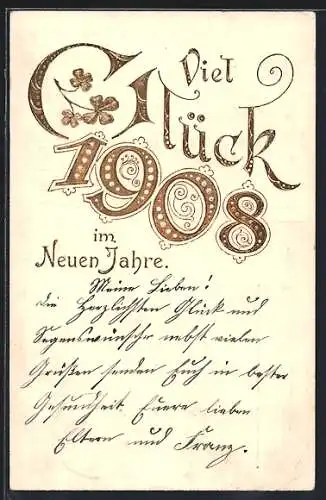 Viel
Glück
1908
im
Neuen Jahre.
Meine Lieben!
die Herzlichsten Glück und
Segenswünsche nebst vielen
Grüßen senden Euch in bester
Gesundheit. Euere lieben
Eltern und Franz.